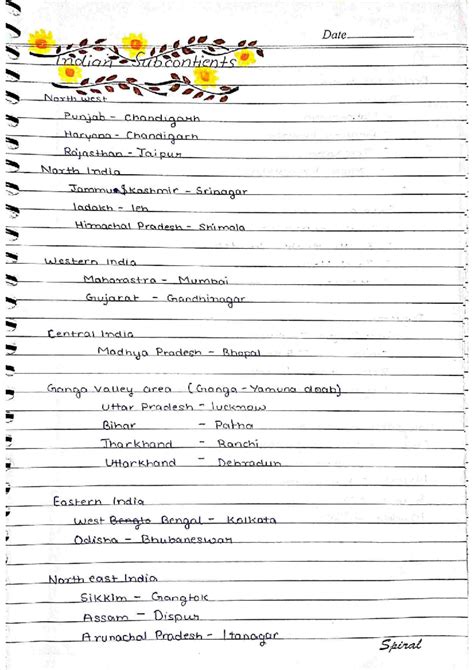 Date
Indian Subcontients
North west
Punjab - Chandigarh
Haryana - Chandigarh
Rajasthan - Jaipur
North India
Jammu & Kashmir - Srinagar
ladakh - leh
Himachal Pradesh - Shimala
Western India
Maharastra - Mumbai
Gujarat - Gandhinagar
Central India
Madhya Pradesh - Bhopal
Ganga Valley area (Ganga - Yamuna doab)
Uttar Pradesh - lucknow
Bihar - Patna
Jharkhand - Ranchi
Uttarkhand - Debradun
Eastern India
West Bengto Bengal - Kolkata
Odisha - Bhubaneswar
North east India
Sikkim - Gangtok
Assam - Dispur
Arunachal Pradesh - Itanagar
Spiral